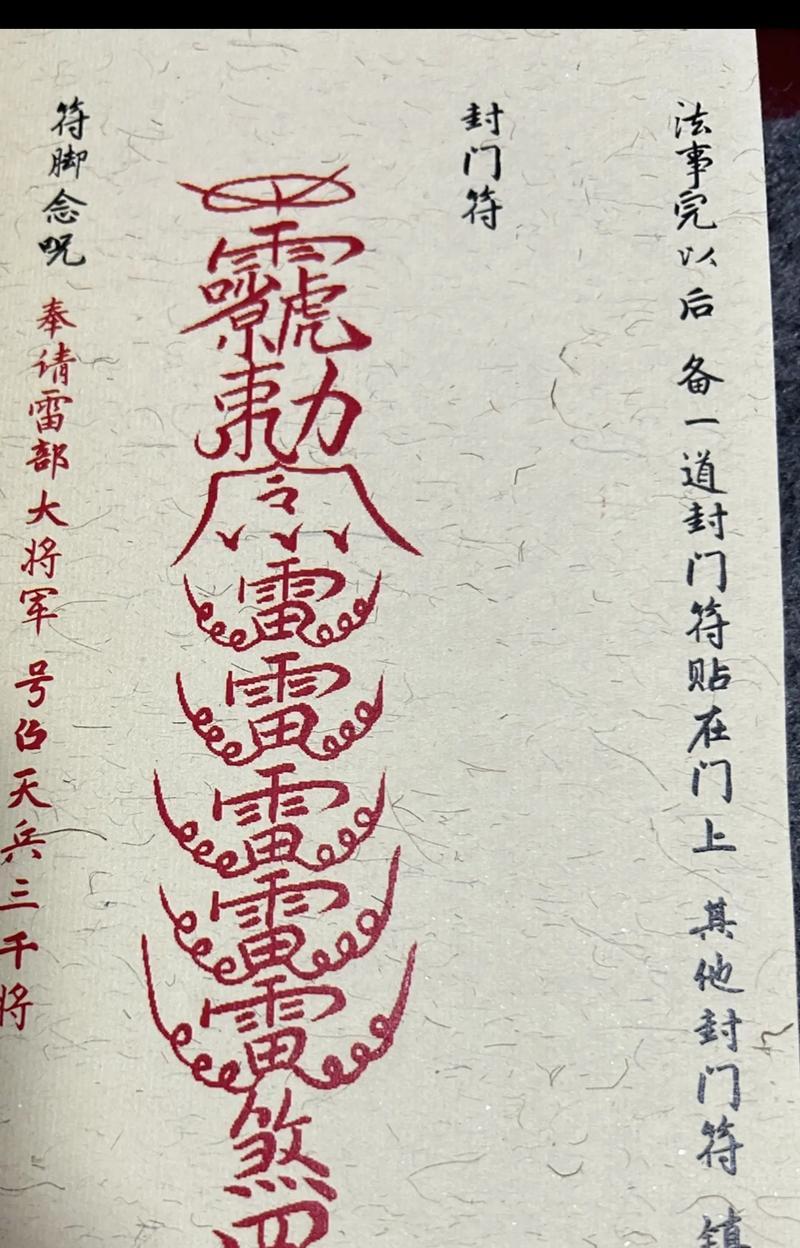 法事完以后 备一道封门符贴在门上 其他封门符 镇
封门符
勅
令
雷
雷
雷
雷
雷
煞
四
符脚念呪 奉请雷部大将军 号召天兵三千将